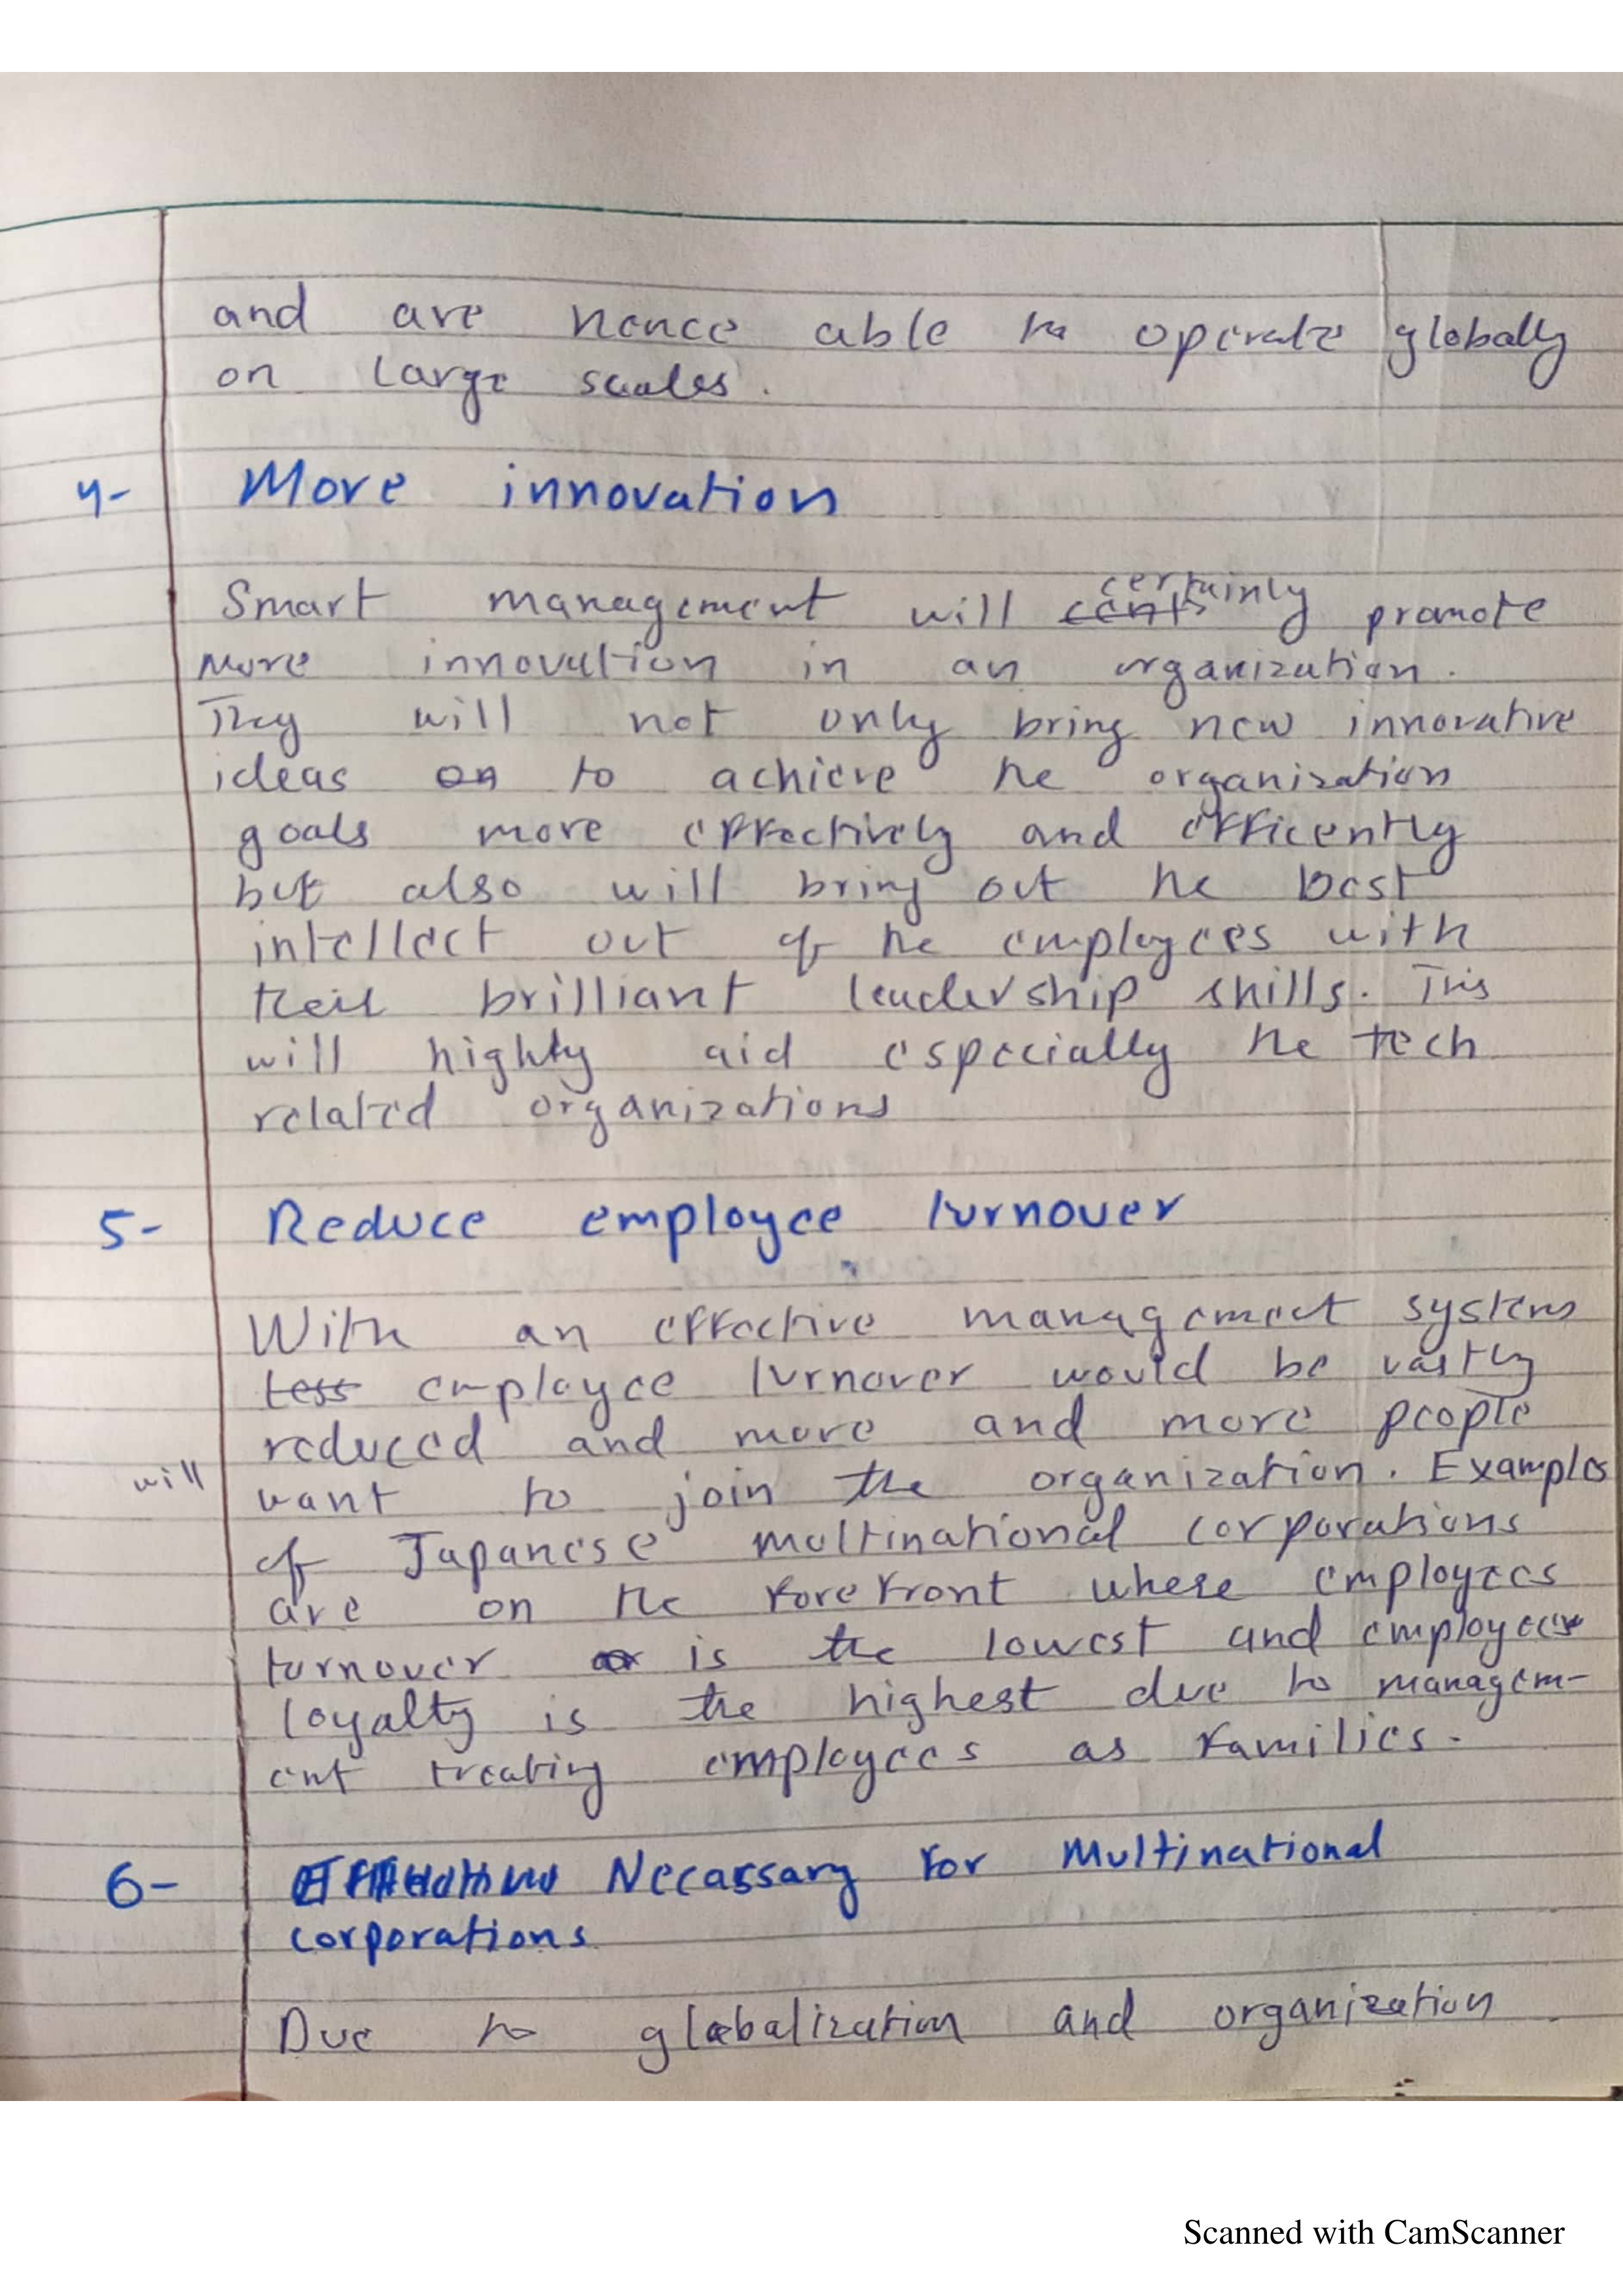 and are hence able to operate globally
on large scales.
4- More innovation
Smart management will certainly promote
more innovation in an organization.
They will not only bring new innovative
ideas to achieve the organization
goals more effectively and efficently
but also will bring out the best
intellect out of the employees with
their brilliant leadership skills. This
will highly aid especially the tech
related organizations
5- Reduce employee turnover
With an effective management systems
employee turnover would be vastly
reduced and more and more people
will want to join the organization. Examples
of Japanese multinational corporations
are on the forefront where employees
turnover is the lowest and employees
loyalty is the highest due to managem-
ent treating employees as families.
6- Necassary for Multinational
corporations
Due to globalization and organization
Scanned with CamScanner